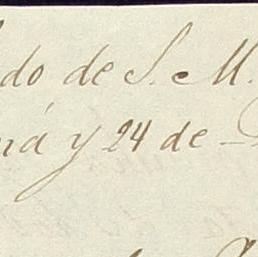 do de S. M.
ná y 24 de